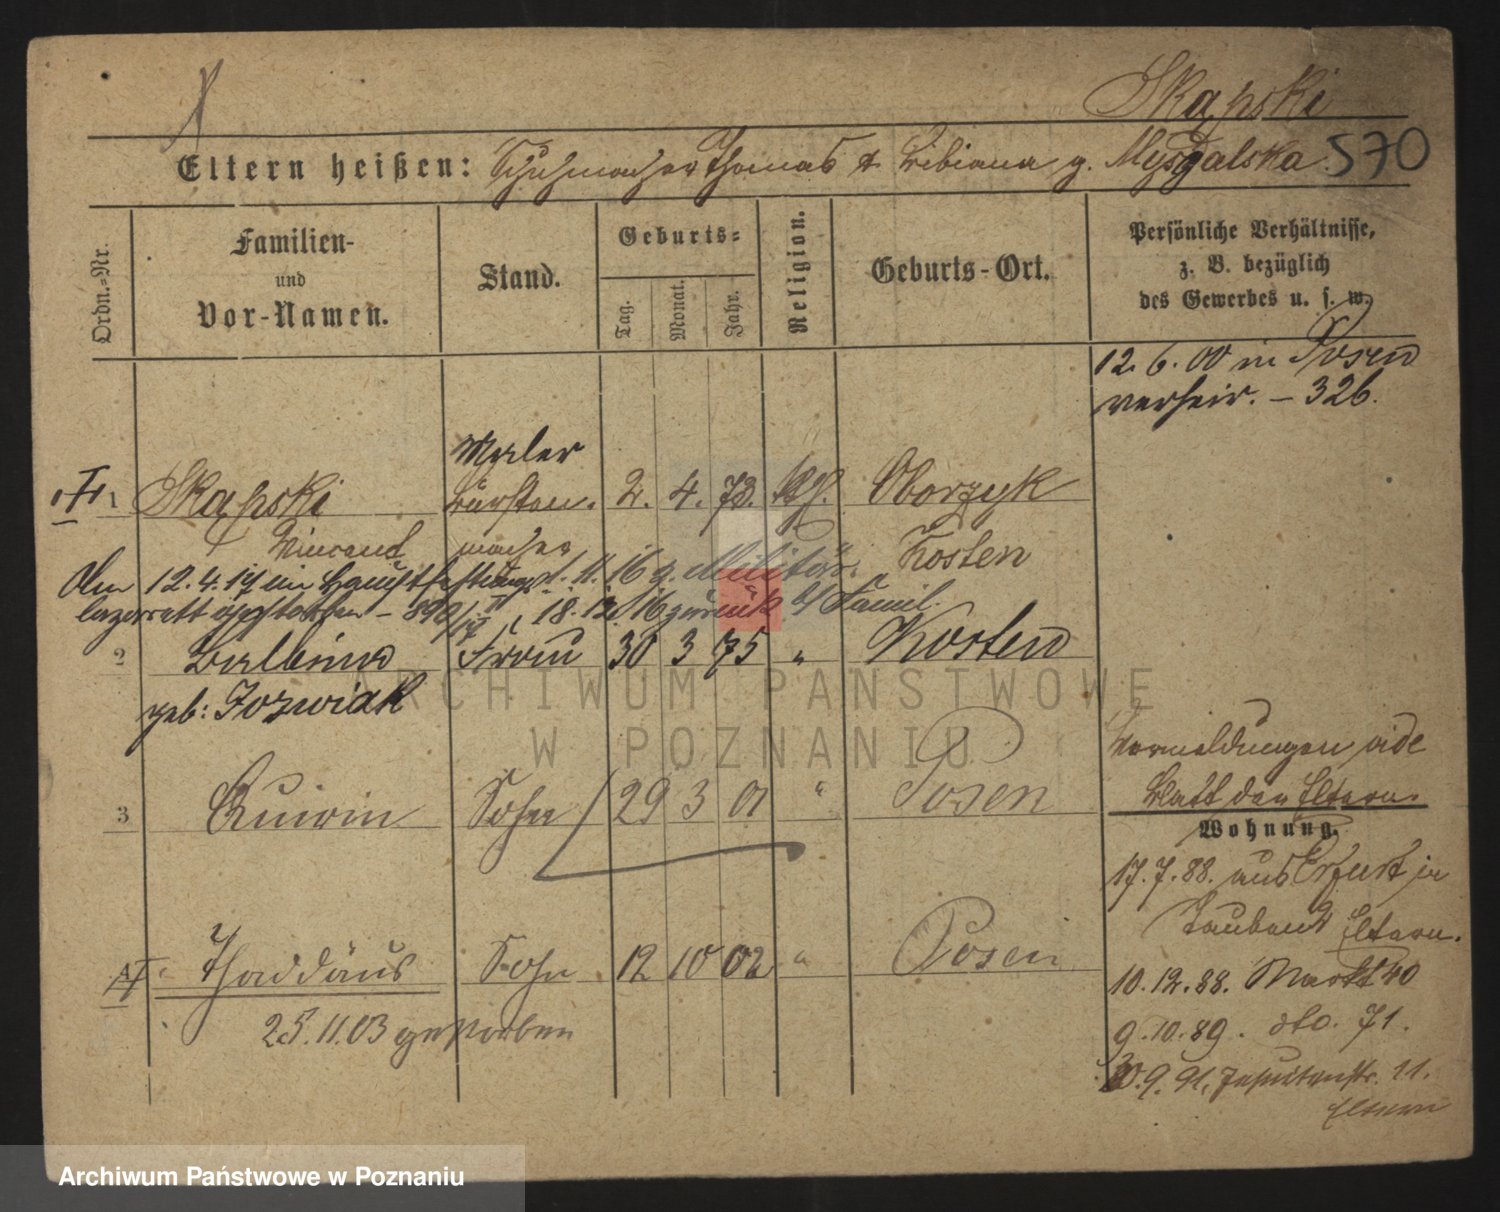 Skąpski
Eltern heißen: Schuhmacher Thomas & Bibiana g. Mysgalska 570
Ordn.-Nr.
Familien-
und
Vor-Namen.
Stand.
Geburts-
Tag. Monat. Jahr.
Religion.
Geburts-Ort.
Persönliche Verhältnisse,
z. B. bezüglich
des Gewerbes u. s. w.
12. 6. 00 in Posen
verheir. – 326.
Maler
1 Skąpski Bürsten- 2. 4. 73. kth. Oborzysk
Vincent macher Kosten
Am 12.4.17 im Hauptfestungs- 1. 11. 16 z. Militär
lazarett gestorben – 890/17 18. 12. 16 zurück b/ Famil.
2 Balbina Frau 30 3 75 " Kosten
geb: Jozwiak
3 Quirin Sohn 29 3 01 " Posen
4 Thaddäus Sohn 12 10 02 " Posen
25.11.03 gestorben
Vermeldungen vide
Blatt der Eltern.
Wohnung.
17. 7. 88. aus Erfurt in
Eltern.
10. 12. 88. Markt 40
9. 10. 89. dto. 71.
30. 9. 91. Jesuitenstr. 11.
Eltern
ARCHIWUM PAŃSTWOWE
W POZNANIU
Archiwum Państwowe w Poznaniu